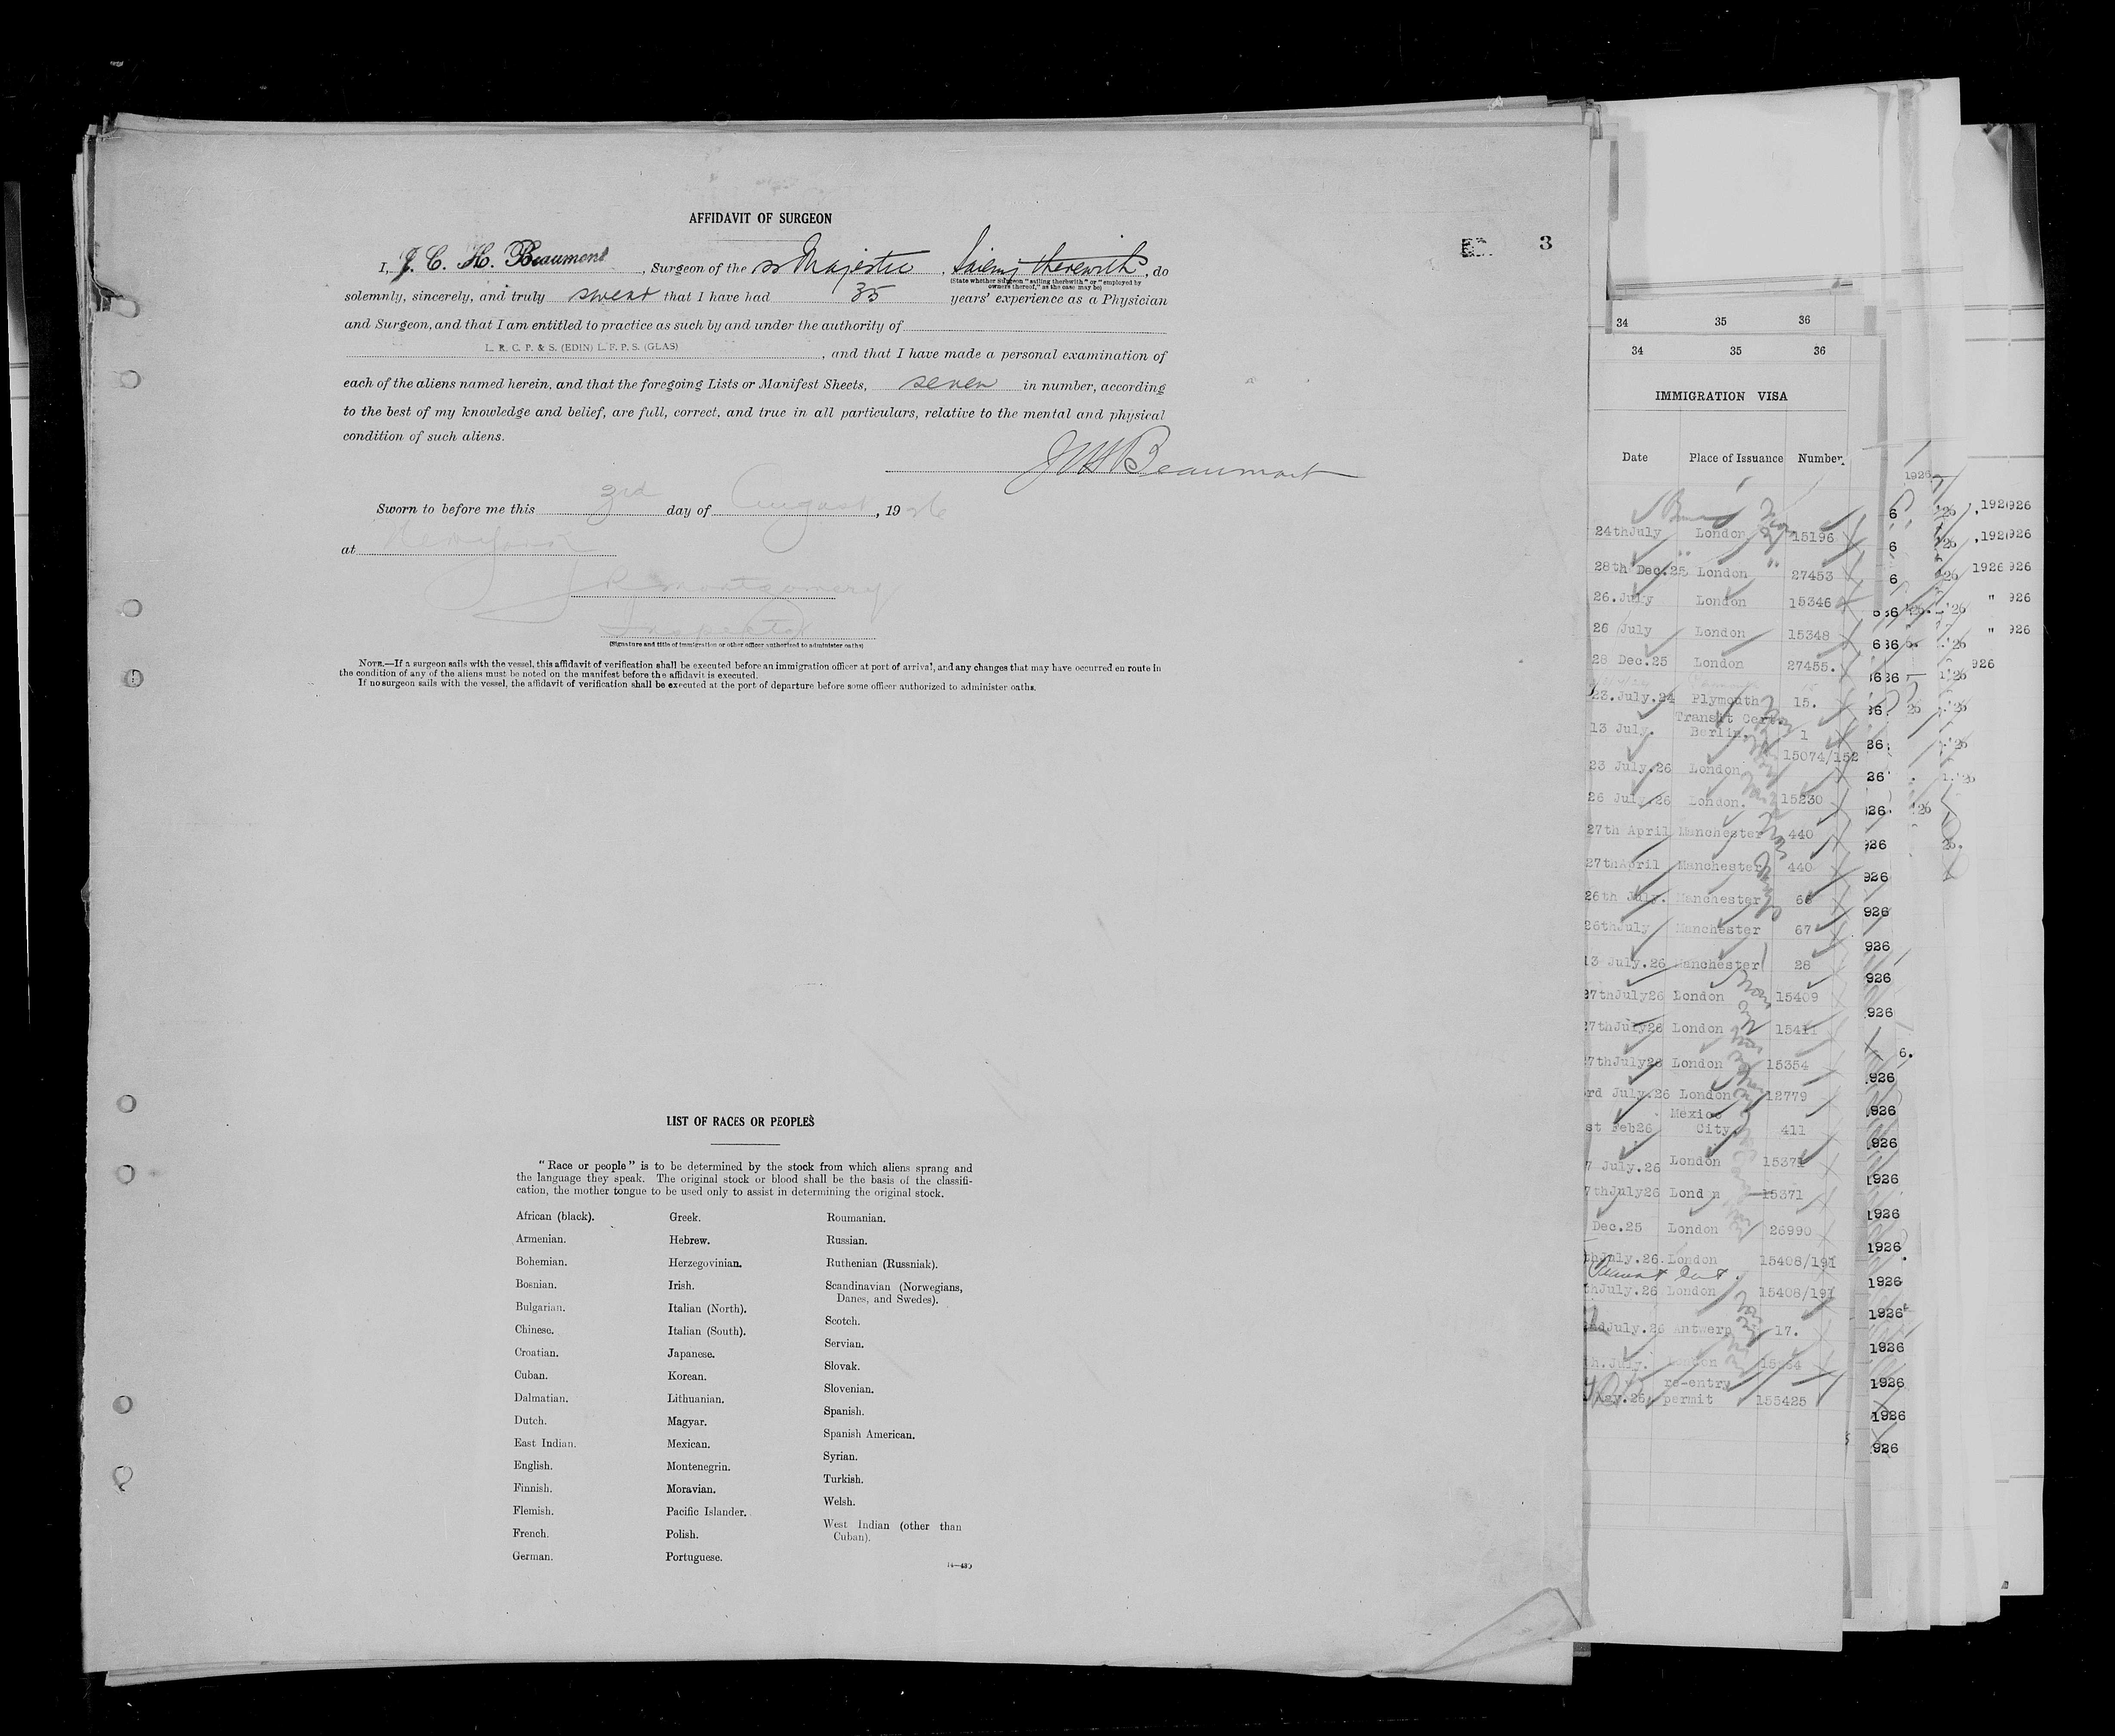 AFFIDAVIT OF SURGEON
3
I, J. C. H. Beaumont, Surgeon of the ss Majestic, Sailing therewith, do
(State whether Surgeon "sailing therewith" or "employed by
owners thereof," as the case may be)
solemnly, sincerely, and truly swear that I have had 35 years' experience as a Physician
and Surgeon, and that I am entitled to practice as such by and under the authority of
L. R. C. P. & S. (EDIN) L. F. P. S. (GLAS)
, and that I have made a personal examination of
each of the aliens named herein, and that the foregoing Lists or Manifest Sheets, seven in number, according
to the best of my knowledge and belief, are full, correct, and true in all particulars, relative to the mental and physical
condition of such aliens.
JCH Beaumont
Sworn to before me this 3rd day of August, 1926
at New York
J R Montgomery
Inspector
(Signature and title of immigration or other officer authorized to administer oaths)
NOTE.—If a surgeon sails with the vessel, this affidavit of verification shall be executed before an immigration officer at port of arrival, and any changes that may have occurred en route in
the condition of any of the aliens must be noted on the manifest before the affidavit is executed.
If no surgeon sails with the vessel, the affidavit of verification shall be executed at the port of departure before some officer authorized to administer oaths.
LIST OF RACES OR PEOPLES
"Race or people" is to be determined by the stock from which aliens sprang and
the language they speak. The original stock or blood shall be the basis of the classifi-
cation, the mother tongue to be used only to assist in determining the original stock.
African (black).
Armenian.
Bohemian.
Bosnian.
Bulgarian.
Chinese.
Croatian.
Cuban.
Dalmatian.
Dutch.
East Indian.
English.
Finnish.
Flemish.
French.
German.
Greek.
Hebrew.
Herzegovinian.
Irish.
Italian (North).
Italian (South).
Japanese.
Korean.
Lithuanian.
Magyar.
Mexican.
Montenegrin.
Moravian.
Pacific Islander.
Polish.
Portuguese.
Roumanian.
Russian.
Ruthenian (Russniak).
Scandinavian (Norwegians,
Danes, and Swedes).
Scotch.
Servian.
Slovak.
Slovenian.
Spanish.
Spanish American.
Syrian.
Turkish.
Welsh.
West Indian (other than
Cuban).
34 35 36
34 35 36
IMMIGRATION VISA
Date Place of Issuance Number
24thJuly London 15196
28th Dec.25 London 27453
26.July London 15346
26 July London 15348
28 Dec.25 London 27455.
23.July.24 Plymouth 15.
Transit Cert.
13 July. Berlin. 1
15074/152
23 July.26 London
26 July.26 London. 15230
27th April Manchester 440
27thApril Manchester 440
26th July. Manchester 66
26thJuly Manchester 67
13 July.26 Manchester 28
27thJuly26 London 15409
27thJuly26 London 15411
7thJuly26 London 15354
rd July.26 London 12779
Mexico
st Feb26 City. 411
7 July.26 London 15371
7thJuly26 Lond n 15371
Dec.25 London 26990
thJuly.26. London 15408/191
thJuly.26 London 15408/191
ndJuly.26 Antwerp 17.
th.July. London
re-entry
May.26. permit 155425